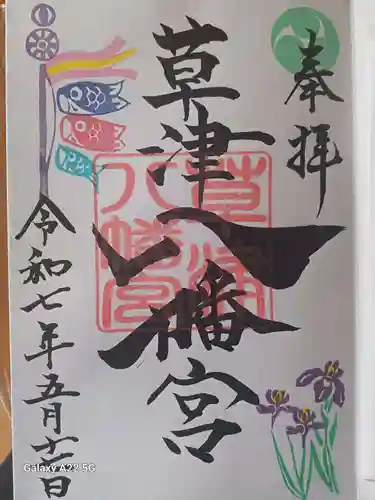 奉拝
草津八幡宮
草津
八幡宮
令和七年五月十日
Galaxy A22 5G